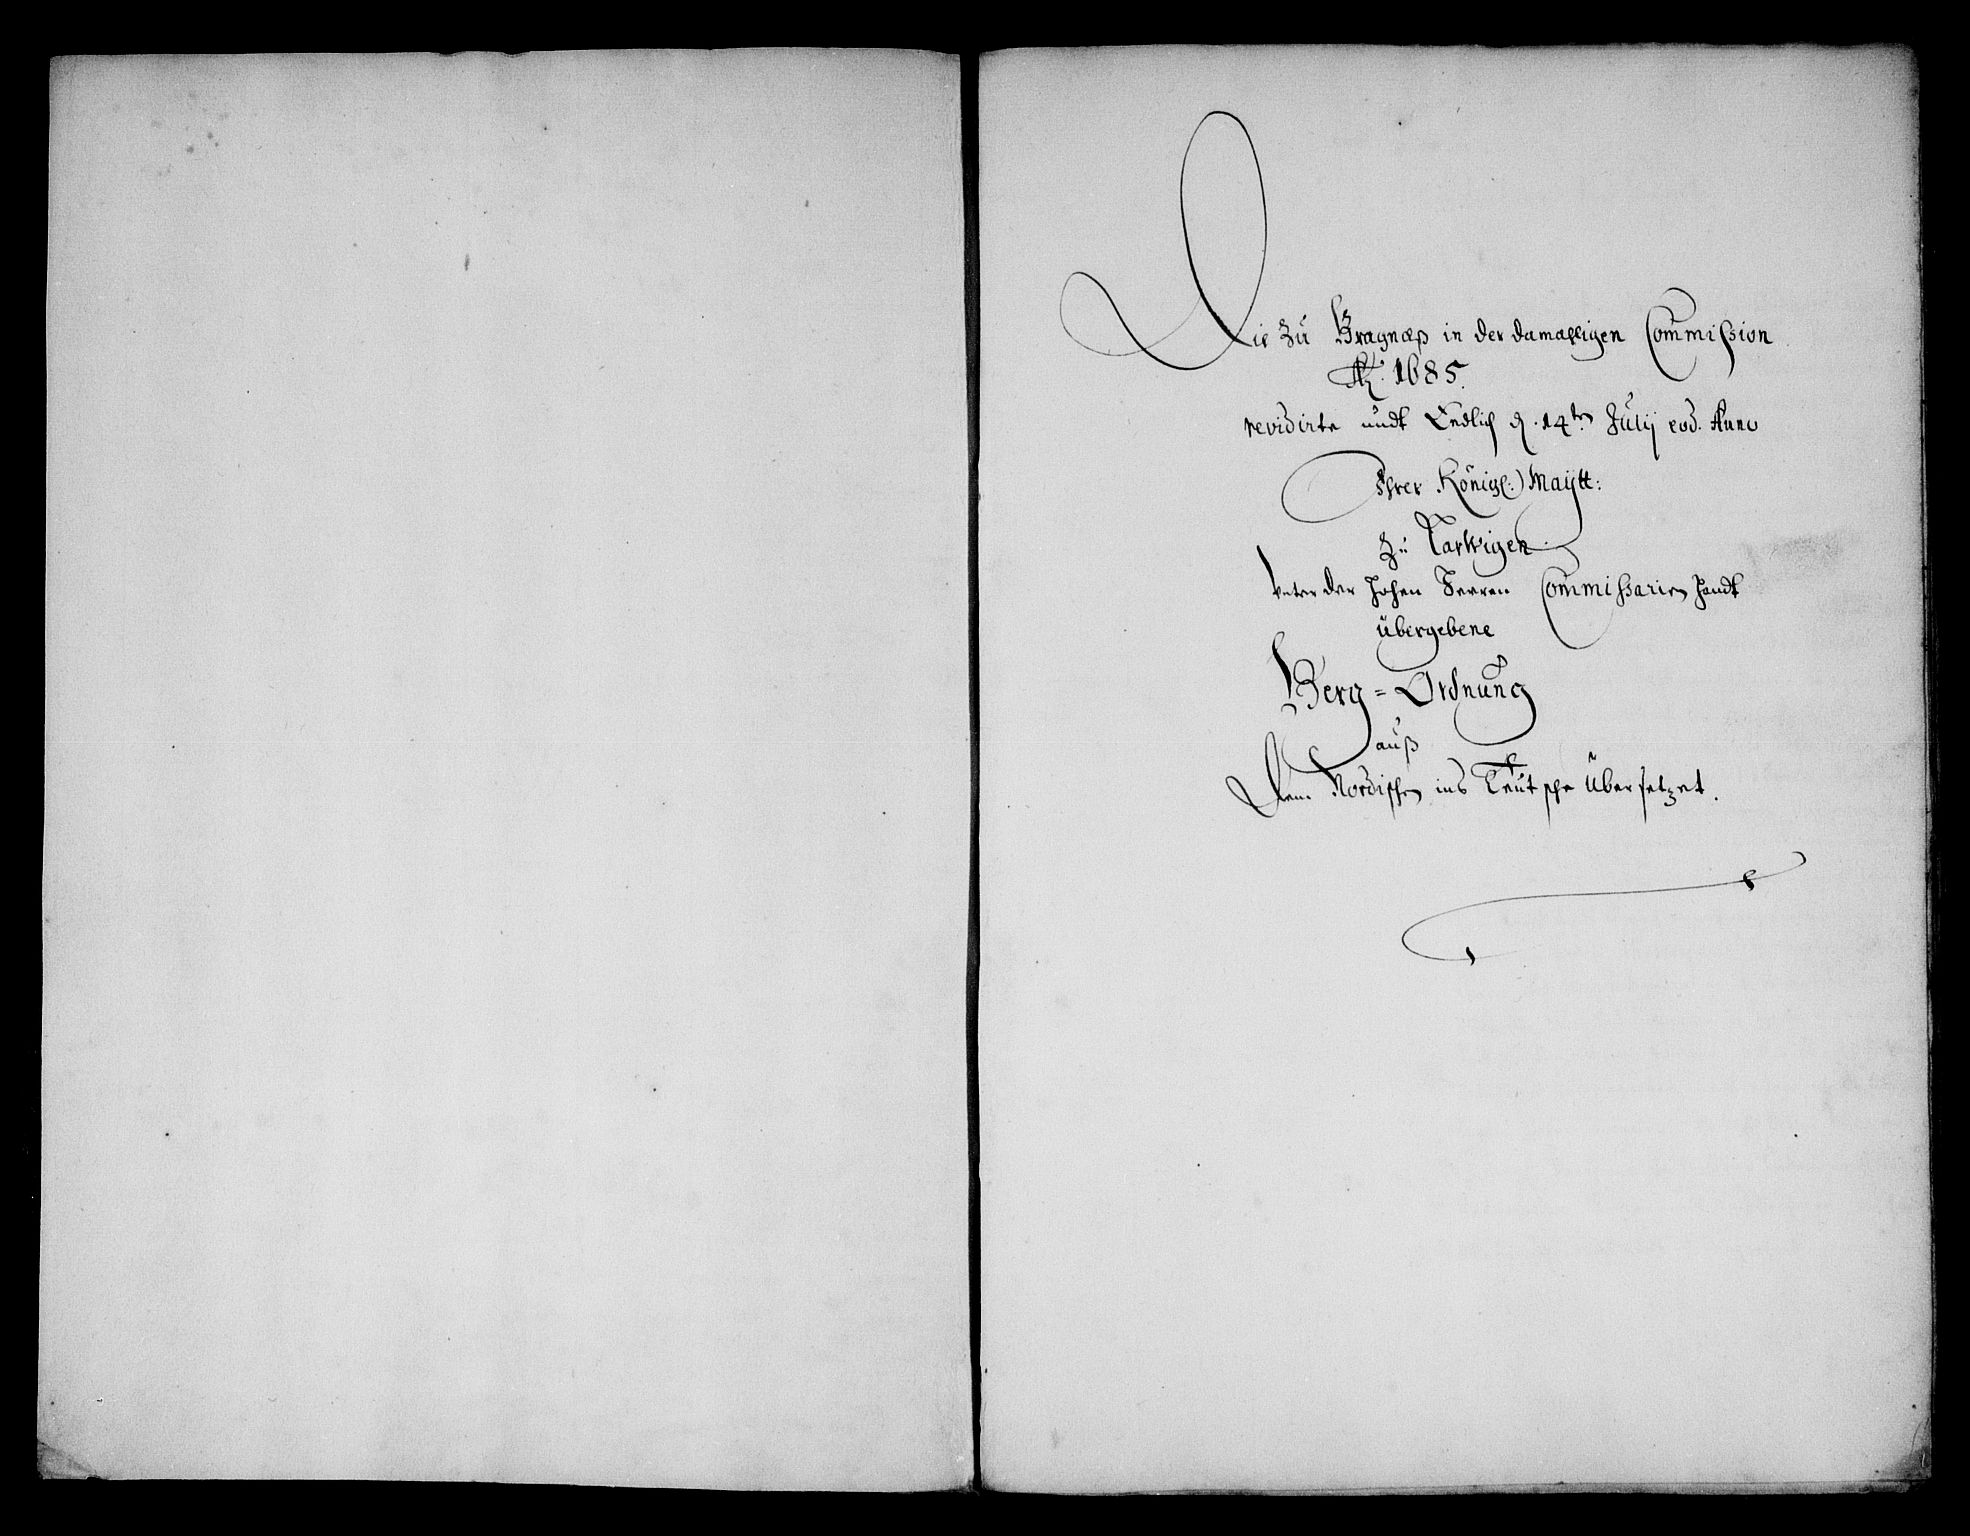 Die zu Bragnæß in der damahligen Commission
Ao. 1685.
revidirte undt Endlich d. 14ten July eod. Anno
Ihrer Königl: Maytt:
zu Larwigen
unter der hohen Herren Commissarien handt
übergebene
Berg=Ordnung
auß
Dem Nordischen ins Teutsche übersetzet.